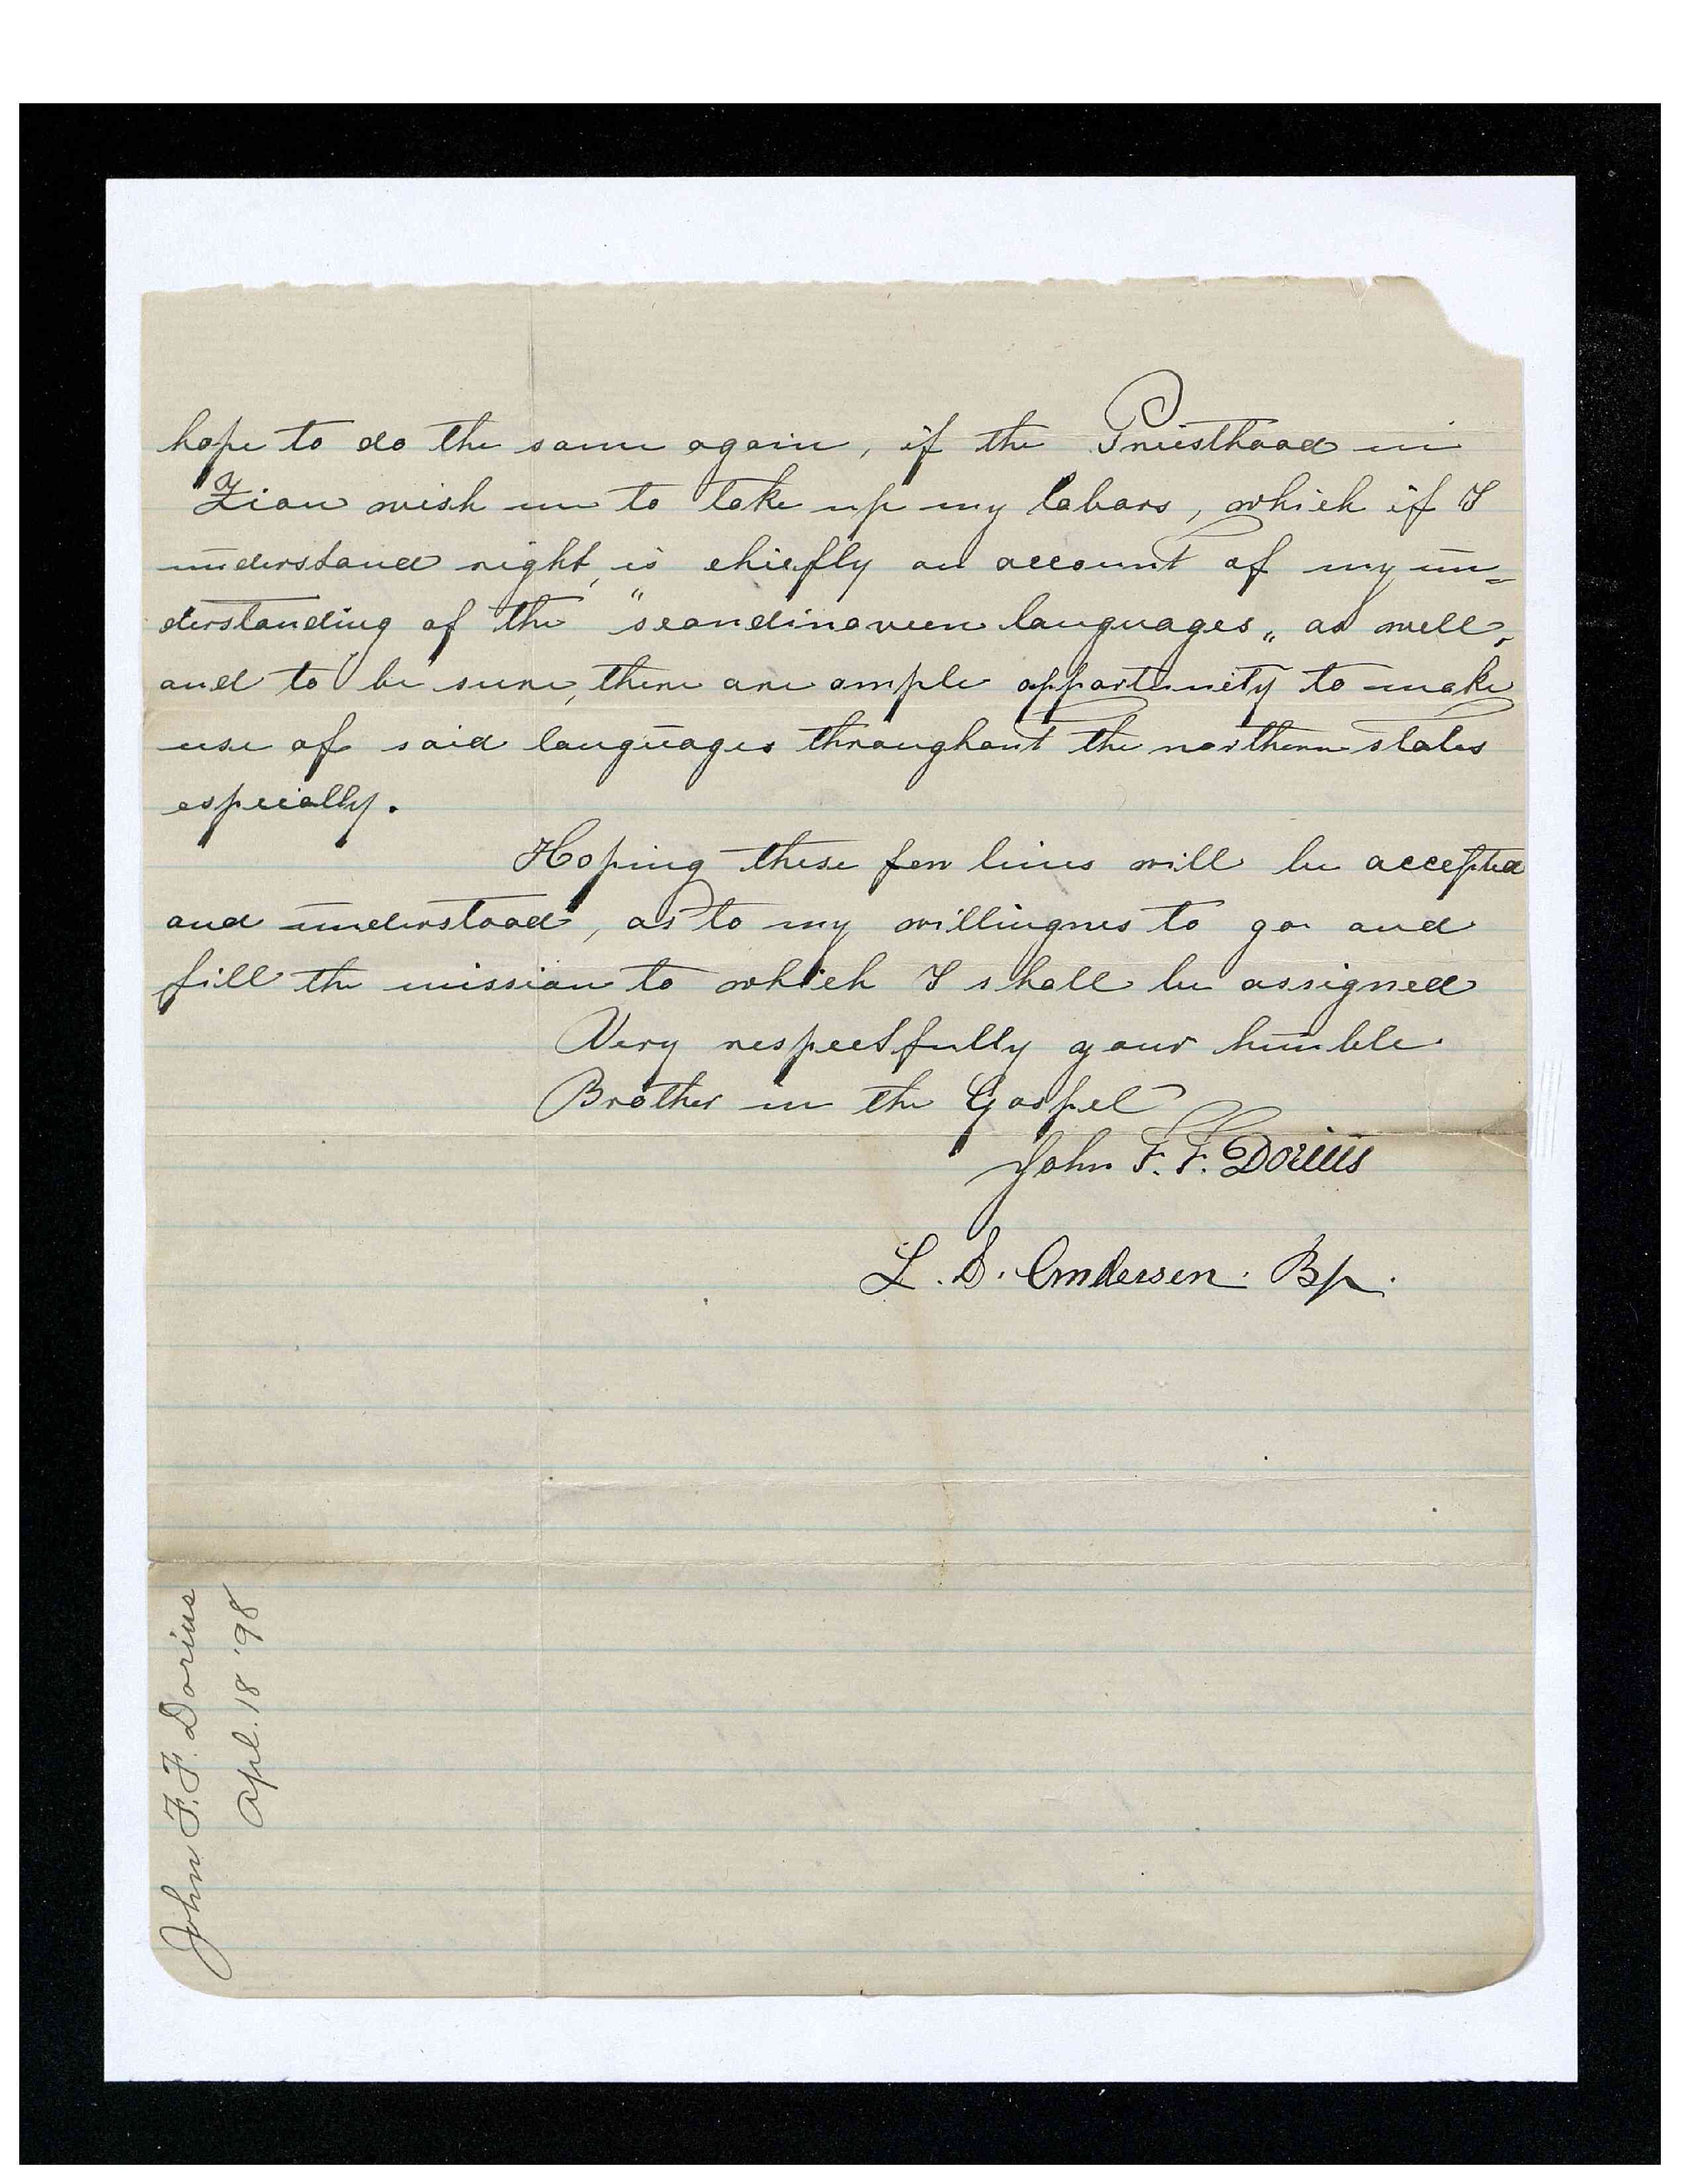 hope to do the same again, if the Priesthood in
Zion wish me to take up my labors, which if I
understand right, is chiefly on account of my un=
derstanding of the "scandinavien languages„ as well,
and to be sure, there are ample opportunity to make
use of said languages throughout the northern states
especially.
Hoping these few lines will be accepted
and understood, as to my willingnes to go and
fill the mission to which I shall be assigned
Very respectfully your humble
Brother in the Gospel
John F. F. Dorius
L. S. Andersen. Bp.
John F. F. Dorius
Apl. 18 '98